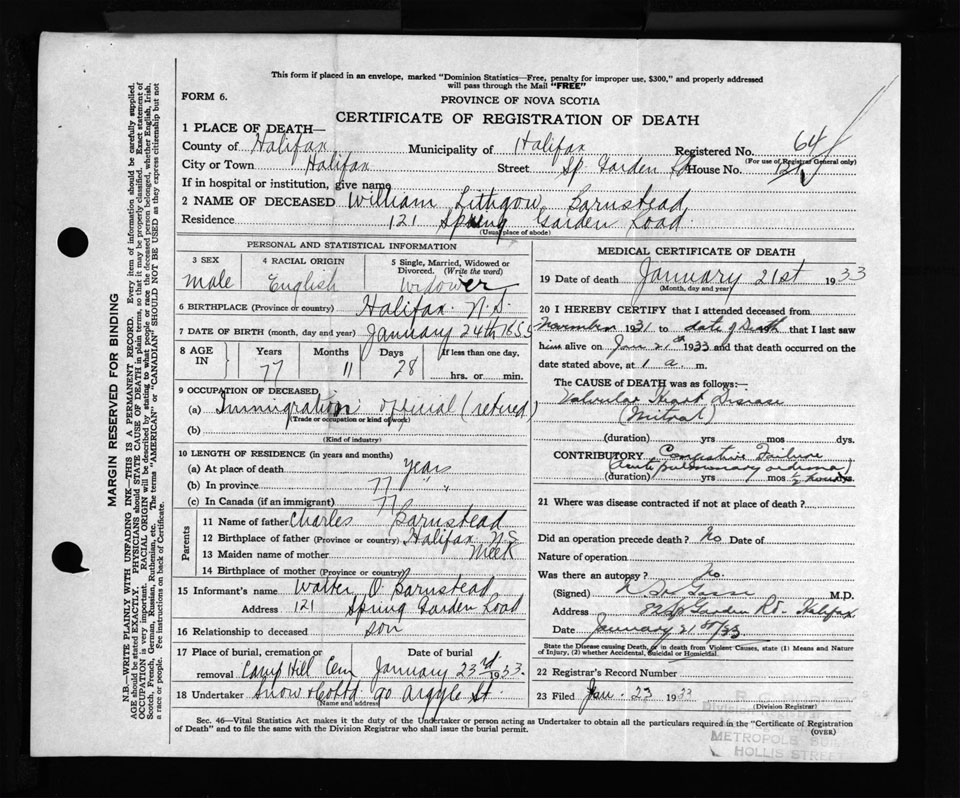 This form if placed in an envelope, marked "Dominion Statistics—Free, penalty for improper use, $300," and properly addressed
will pass through the Mail "FREE"
FORM 6.
PROVINCE OF NOVA SCOTIA
CERTIFICATE OF REGISTRATION OF DEATH
1 PLACE OF DEATH—
County of Halifax Municipality of Halifax Registered No. 64
(For use of Registrar General only)
City or Town Halifax Street Sp. Garden Rd House No. 121
If in hospital or institution, give name
2 NAME OF DECEASED William Lithgow Barnstead
Residence 121 Spring Garden Road
(Usual place of abode)
PERSONAL AND STATISTICAL INFORMATION
3 SEX 4 RACIAL ORIGIN 5 Single, Married, Widowed or
Divorced. (Write the word)
Male English Widower
6 BIRTHPLACE (Province or country) Halifax N.S.
7 DATE OF BIRTH (month, day and year) January 24th 1855
8 AGE IN Years Months Days If less than one day.
77 11 28 hrs. or min.
9 OCCUPATION OF DECEASED
(a) Immigration official (retired)
(Trade or occupation or kind of work)
(b)
(Kind of industry)
10 LENGTH OF RESIDENCE (in years and months)
(a) At place of death years
(b) In province 77 " "
(c) In Canada (if an immigrant) 77
Parents
11 Name of father Charles Barnstead
12 Birthplace of father (Province or country) Halifax N.S.
13 Maiden name of mother Meek
14 Birthplace of mother (Province or country)
15 Informant's name Walter O. Barnstead
Address 121 Spring Garden Road
16 Relationship to deceased son
17 Place of burial, cremation or removal Date of burial
Camp Hill Cem January 23rd 1933.
18 Undertaker Snow & Co Ltd 90 Argyle St.
(Name and address)
MEDICAL CERTIFICATE OF DEATH
19 Date of death January 21st 1933
(Month, day and year)
20 I HEREBY CERTIFY that I attended deceased from
November 1931 to date of Death that I last saw
him alive on Jan 21st 1933 and that death occurred on the
date stated above, at 1 a. m.
The CAUSE OF DEATH was as follows:—
Valvular Heart Disease
(Mitral)
(duration) yrs mos dys.
CONTRIBUTORY Congestive Failure
(acute pulmonary oedema)
(duration) yrs mos ½ hour dys.
21 Where was disease contracted if not at place of death?
Did an operation precede death? No Date of
Nature of operation
Was there an autopsy? No.
(Signed) M.D.
Address Sp Garden Rd - Halifax
Date January 21st/33
State the Disease causing Death, or in death from Violent Causes, state (1) Means and Nature
of Injury, (2) whether Accidental, Suicidal or Homicidal.
22 Registrar's Record Number
23 Filed Jan. 23 1933
(Division Registrar)
METROPOLE
HOLLIS STREET
Sec. 46—Vital Statistics Act makes it the duty of the Undertaker or person acting as Undertaker to obtain all the particulars required in the "Certificate of Registration
of Death" and to file the same with the Division Registrar who shall issue the burial permit.
(OVER)
MARGIN RESERVED FOR BINDING
N.B.—WRITE PLAINLY WITH UNFADING INK—THIS IS A PERMANENT RECORD. Every item of information should be carefully supplied.
AGE should be stated EXACTLY. PHYSICIANS should STATE CAUSE OF DEATH in plain terms, so that it may be properly classified. Exact statement of
OCCUPATION is very important. RACIAL ORIGIN will be described by stating to what people or race the deceased person belonged, whether English, Irish,
Scotch, French, German, Russian, Ruthenian, etc. The terms "AMERICAN" or "CANADIAN" SHOULD NOT BE USED as they express citizenship but not
a race or people. See instructions on back of Certificate.